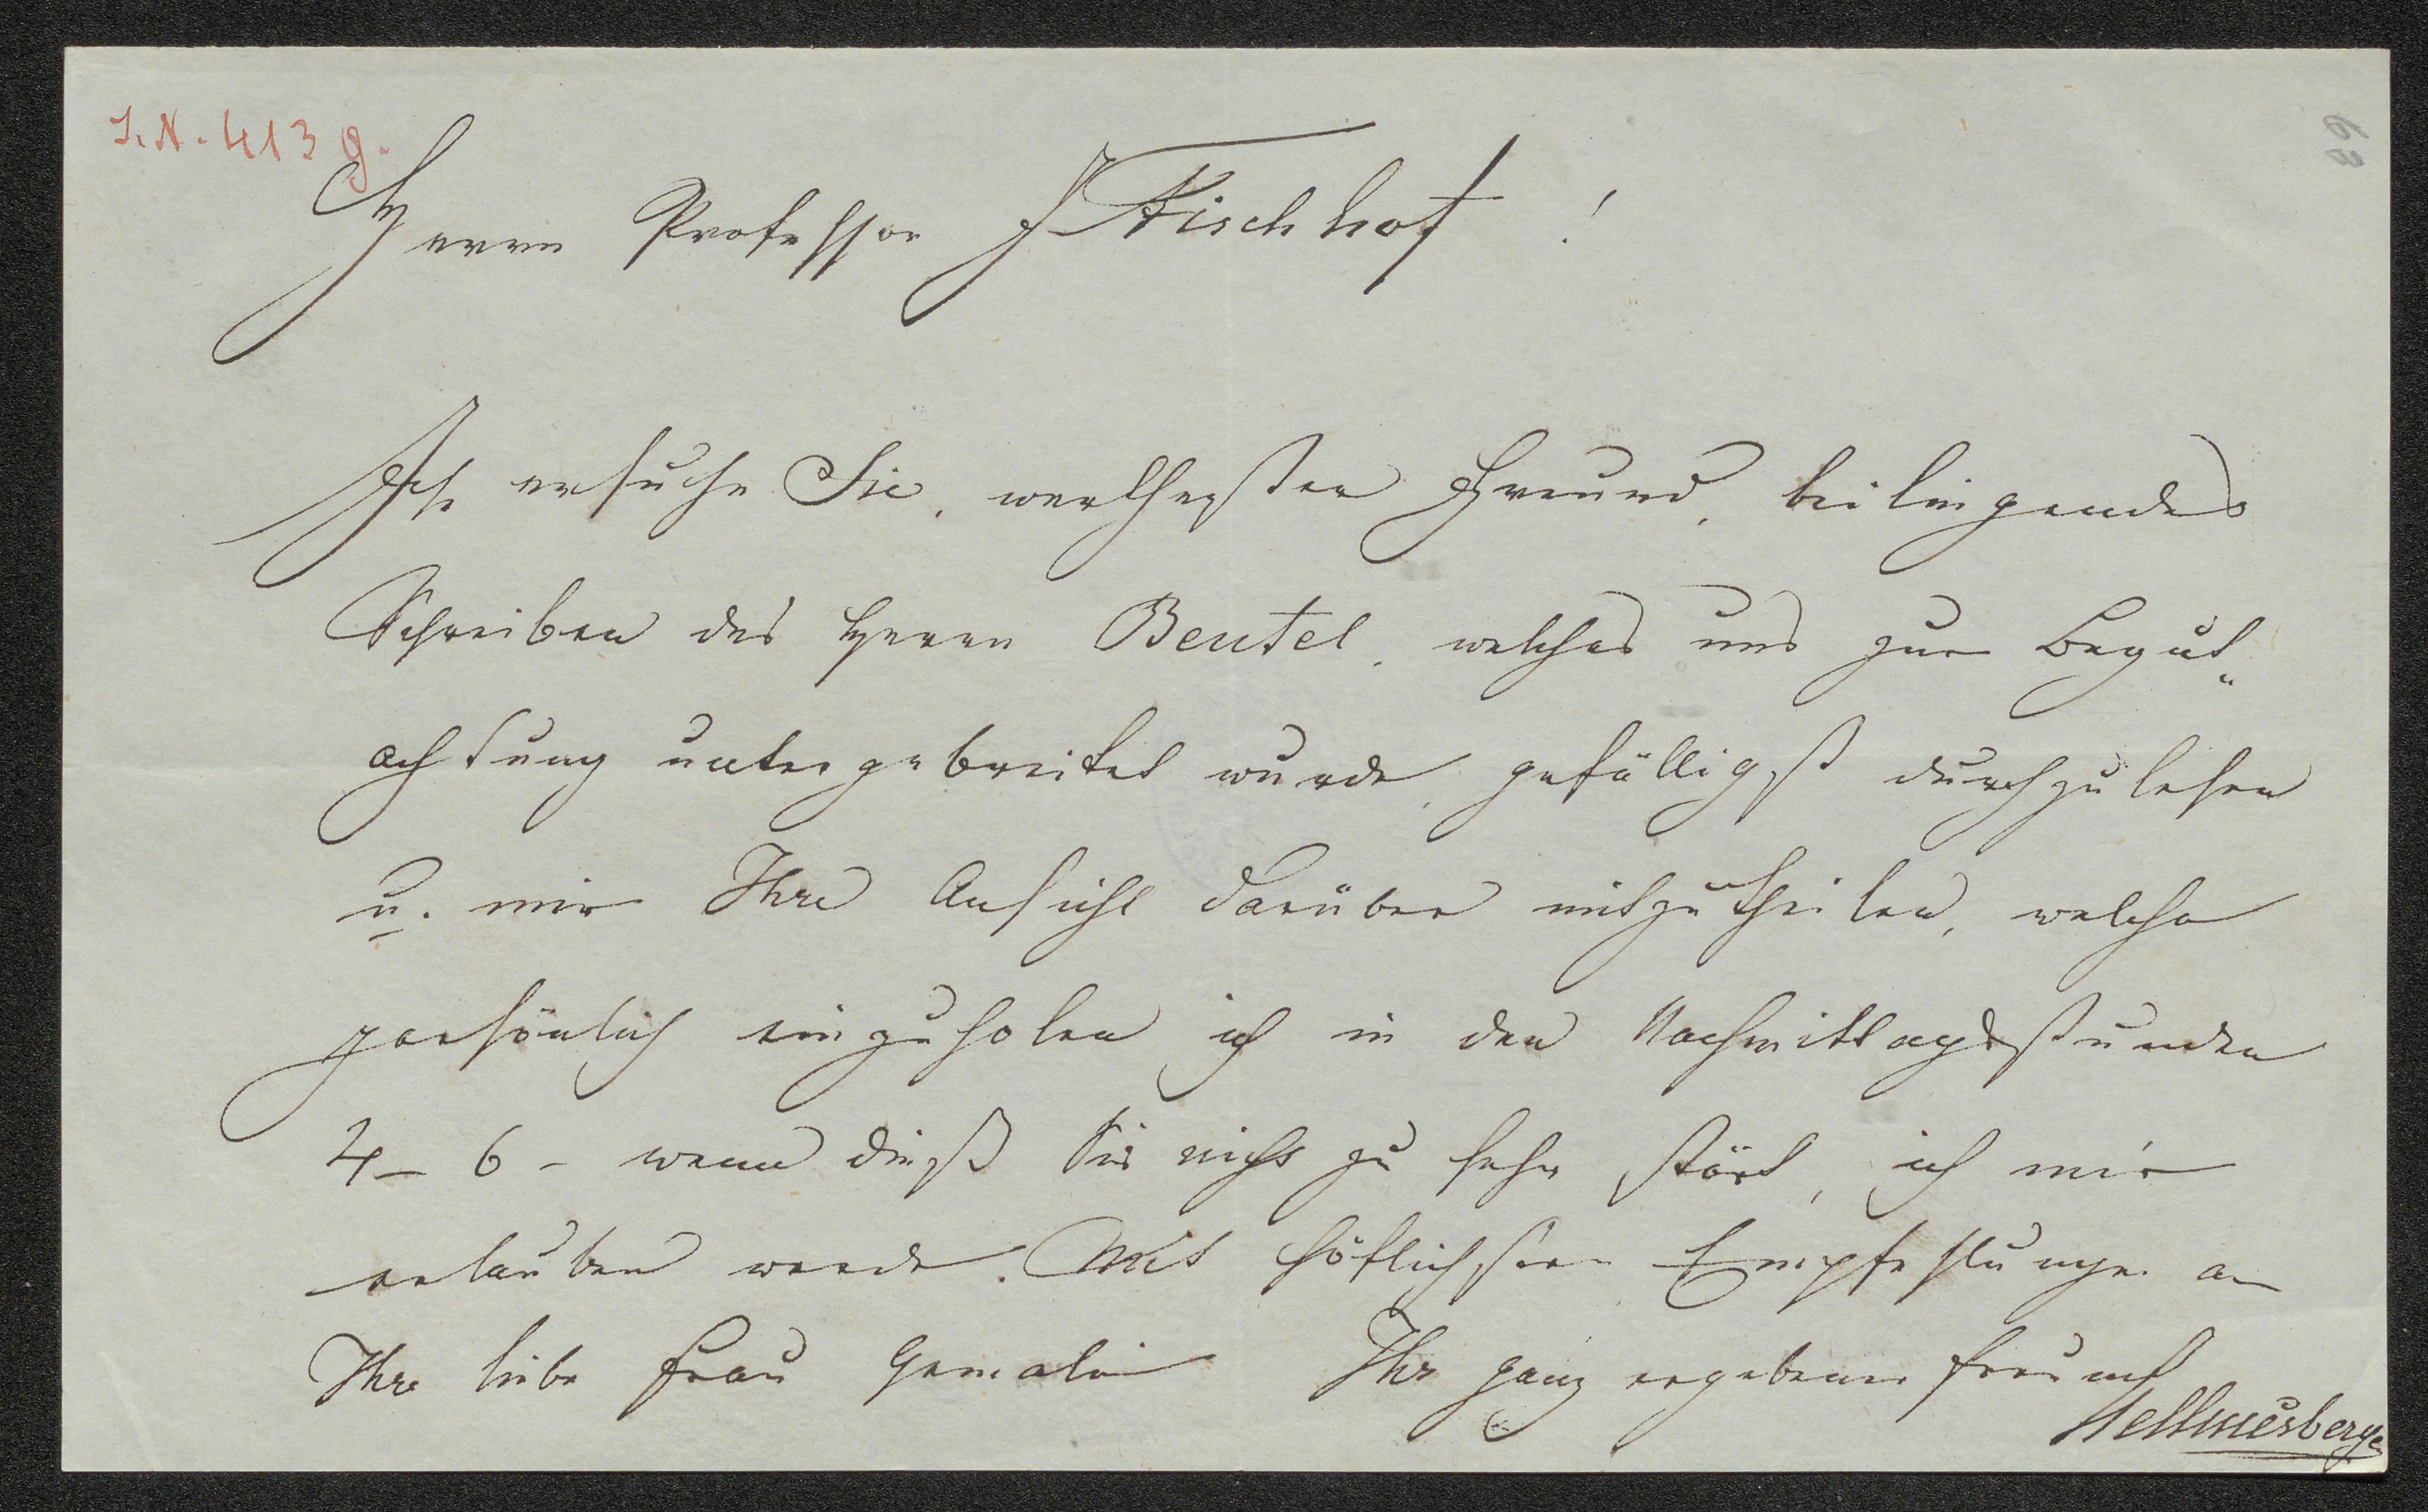 I. N. 413 g.
68
Herrn Professor J Fischhof !
Ich ersuche Sie, werthester Freund, beiliegendes
Schreiben des Herrn Beutel, welches uns zur Begut„
achtung untergebreitet wurde, gefälligst durchzulesen
u. mir Ihre Ansicht darüber mitzutheilen, welche
persönlich einzuholen ich in den Nachmittagsstunden
4 – 6 – wenn dieß Sie nicht zu sehr stört, ich mir
erlauben werde. Mit höflichsten Empfehlungen an
Ihre liebe Frau Gemalin Ihr ganz ergebener Freund
Hellmesberger